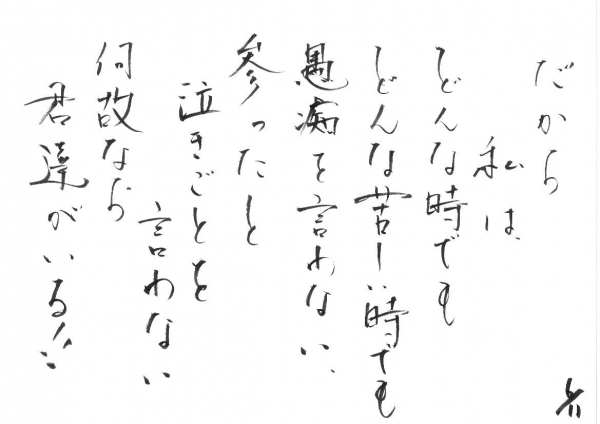 だから
私は、
どんな時でも
どんな苦しい時でも
愚痴を言わない、
参ったと
泣きごとを
言わない
何故なら
君達がいる!!